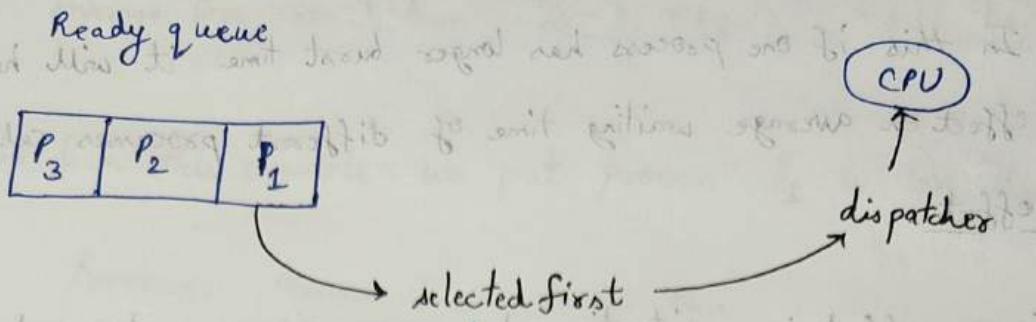 Ready queue
CPU
P3 P2 P1
dispatcher
selected first